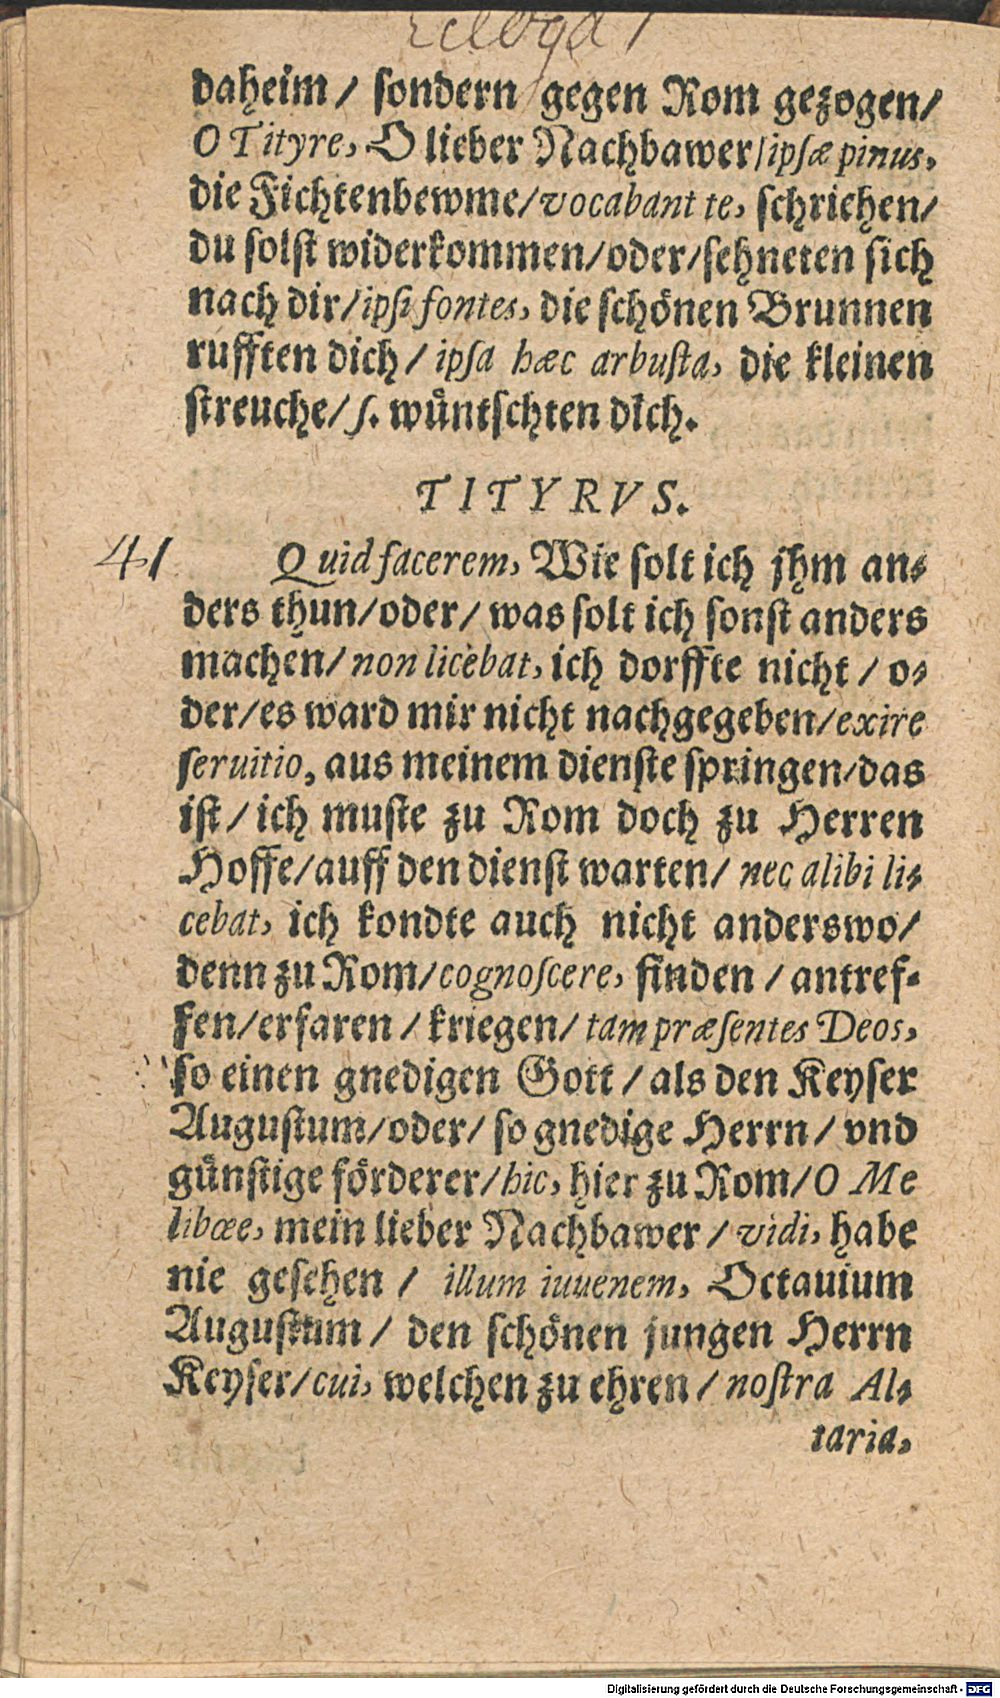 Ecloga 1
daheim/ ſondern gegen Rom gezogen/
O Tityre, O lieber Nachbawer/ipſæ pinus,
die Fichtenbewme/vocabant te, ſchriehen/
du ſolſt widerkommen/oder/ſehneten ſich
nach dir/ipſi fontes, die ſchönen Brunnen
rufften dich/ ipſa hæc arbuſta, die kleinen
ſtreuche/ſ. wüntſchten dich.
TITYRVS.
41 Quid facerem, Wie ſolt ich jhm an⸗
ders thun/oder/ was ſolt ich ſonſt anders
machen/ non licebat, ich dorffte nicht / o⸗
der/es ward mir nicht nachgegeben/exire
ſeruitio, aus meinem dienſte ſpringen/das
iſt/ ich muſte zu Rom doch zu Herren
Hoffe/auff den dienſt warten/ nec alibi li⸗
cebat, ich kondte auch nicht anderswo/
denn zu Rom/cognoſcere, finden / antref⸗
fen/erfaren / kriegen/ tam præſentes Deos,
ſo einen gnedigen Gott / als den Keyſer
Auguſtum/oder/ ſo gnedige Herrn/ vnd
günſtige förderer/hic, hier zu Rom/O Me
libœe, mein lieber Nachbawer / vidi, habe
nie geſehen / illum iuuenem, Octauium
Auguſtum / den ſchönen jungen Herrn
Keyſer/cui, welchen zu ehren / noſtra Al⸗
taria,
Digitalisierung gefördert durch die Deutsche Forschungsgemeinschaft - DFG